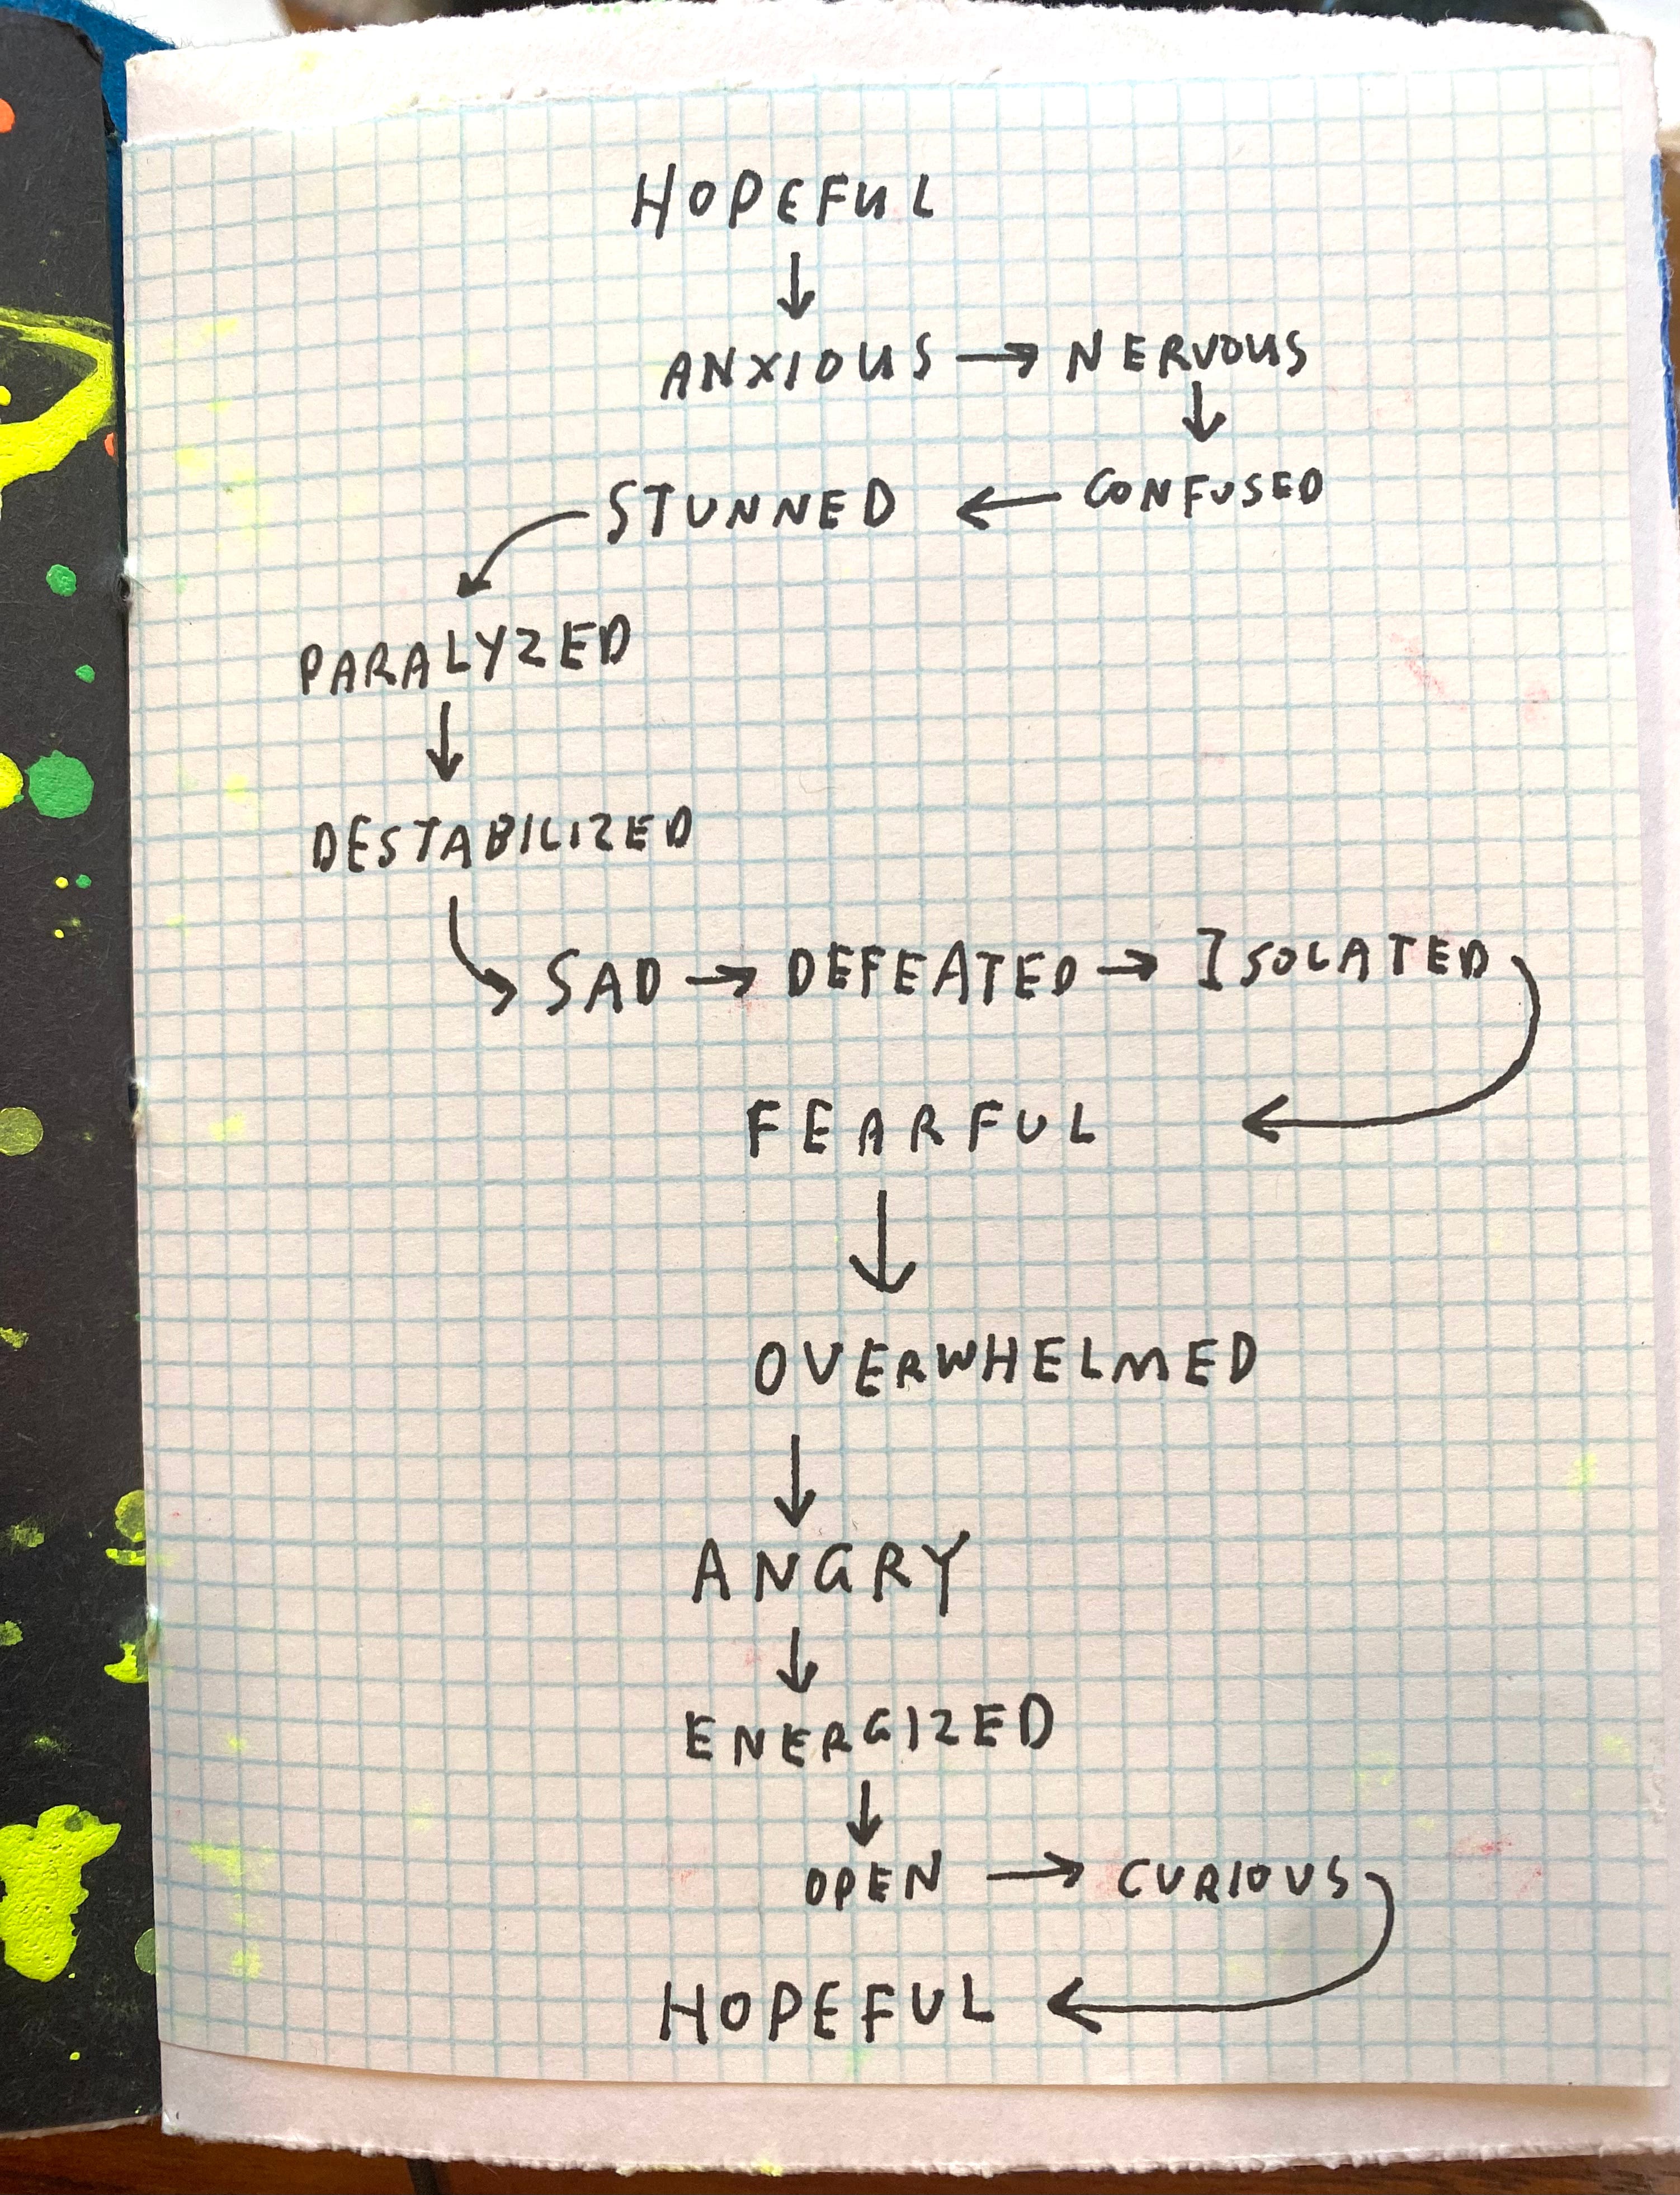 HOPEFUL
↓
ANXIOUS → NERVOUS
↓
STUNNED ← CONFUSED
PARALYZED
↓
DESTABILIZED
SAD → DEFEATED → ISOLATED
FEARFUL ←
↓
OVERWHELMED
↓
ANGRY
↓
ENERGIZED
↓
OPEN → CURIOUS
HOPEFUL ←